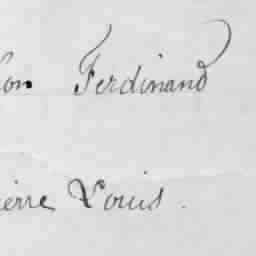 on Ferdinand
ierre Louis.